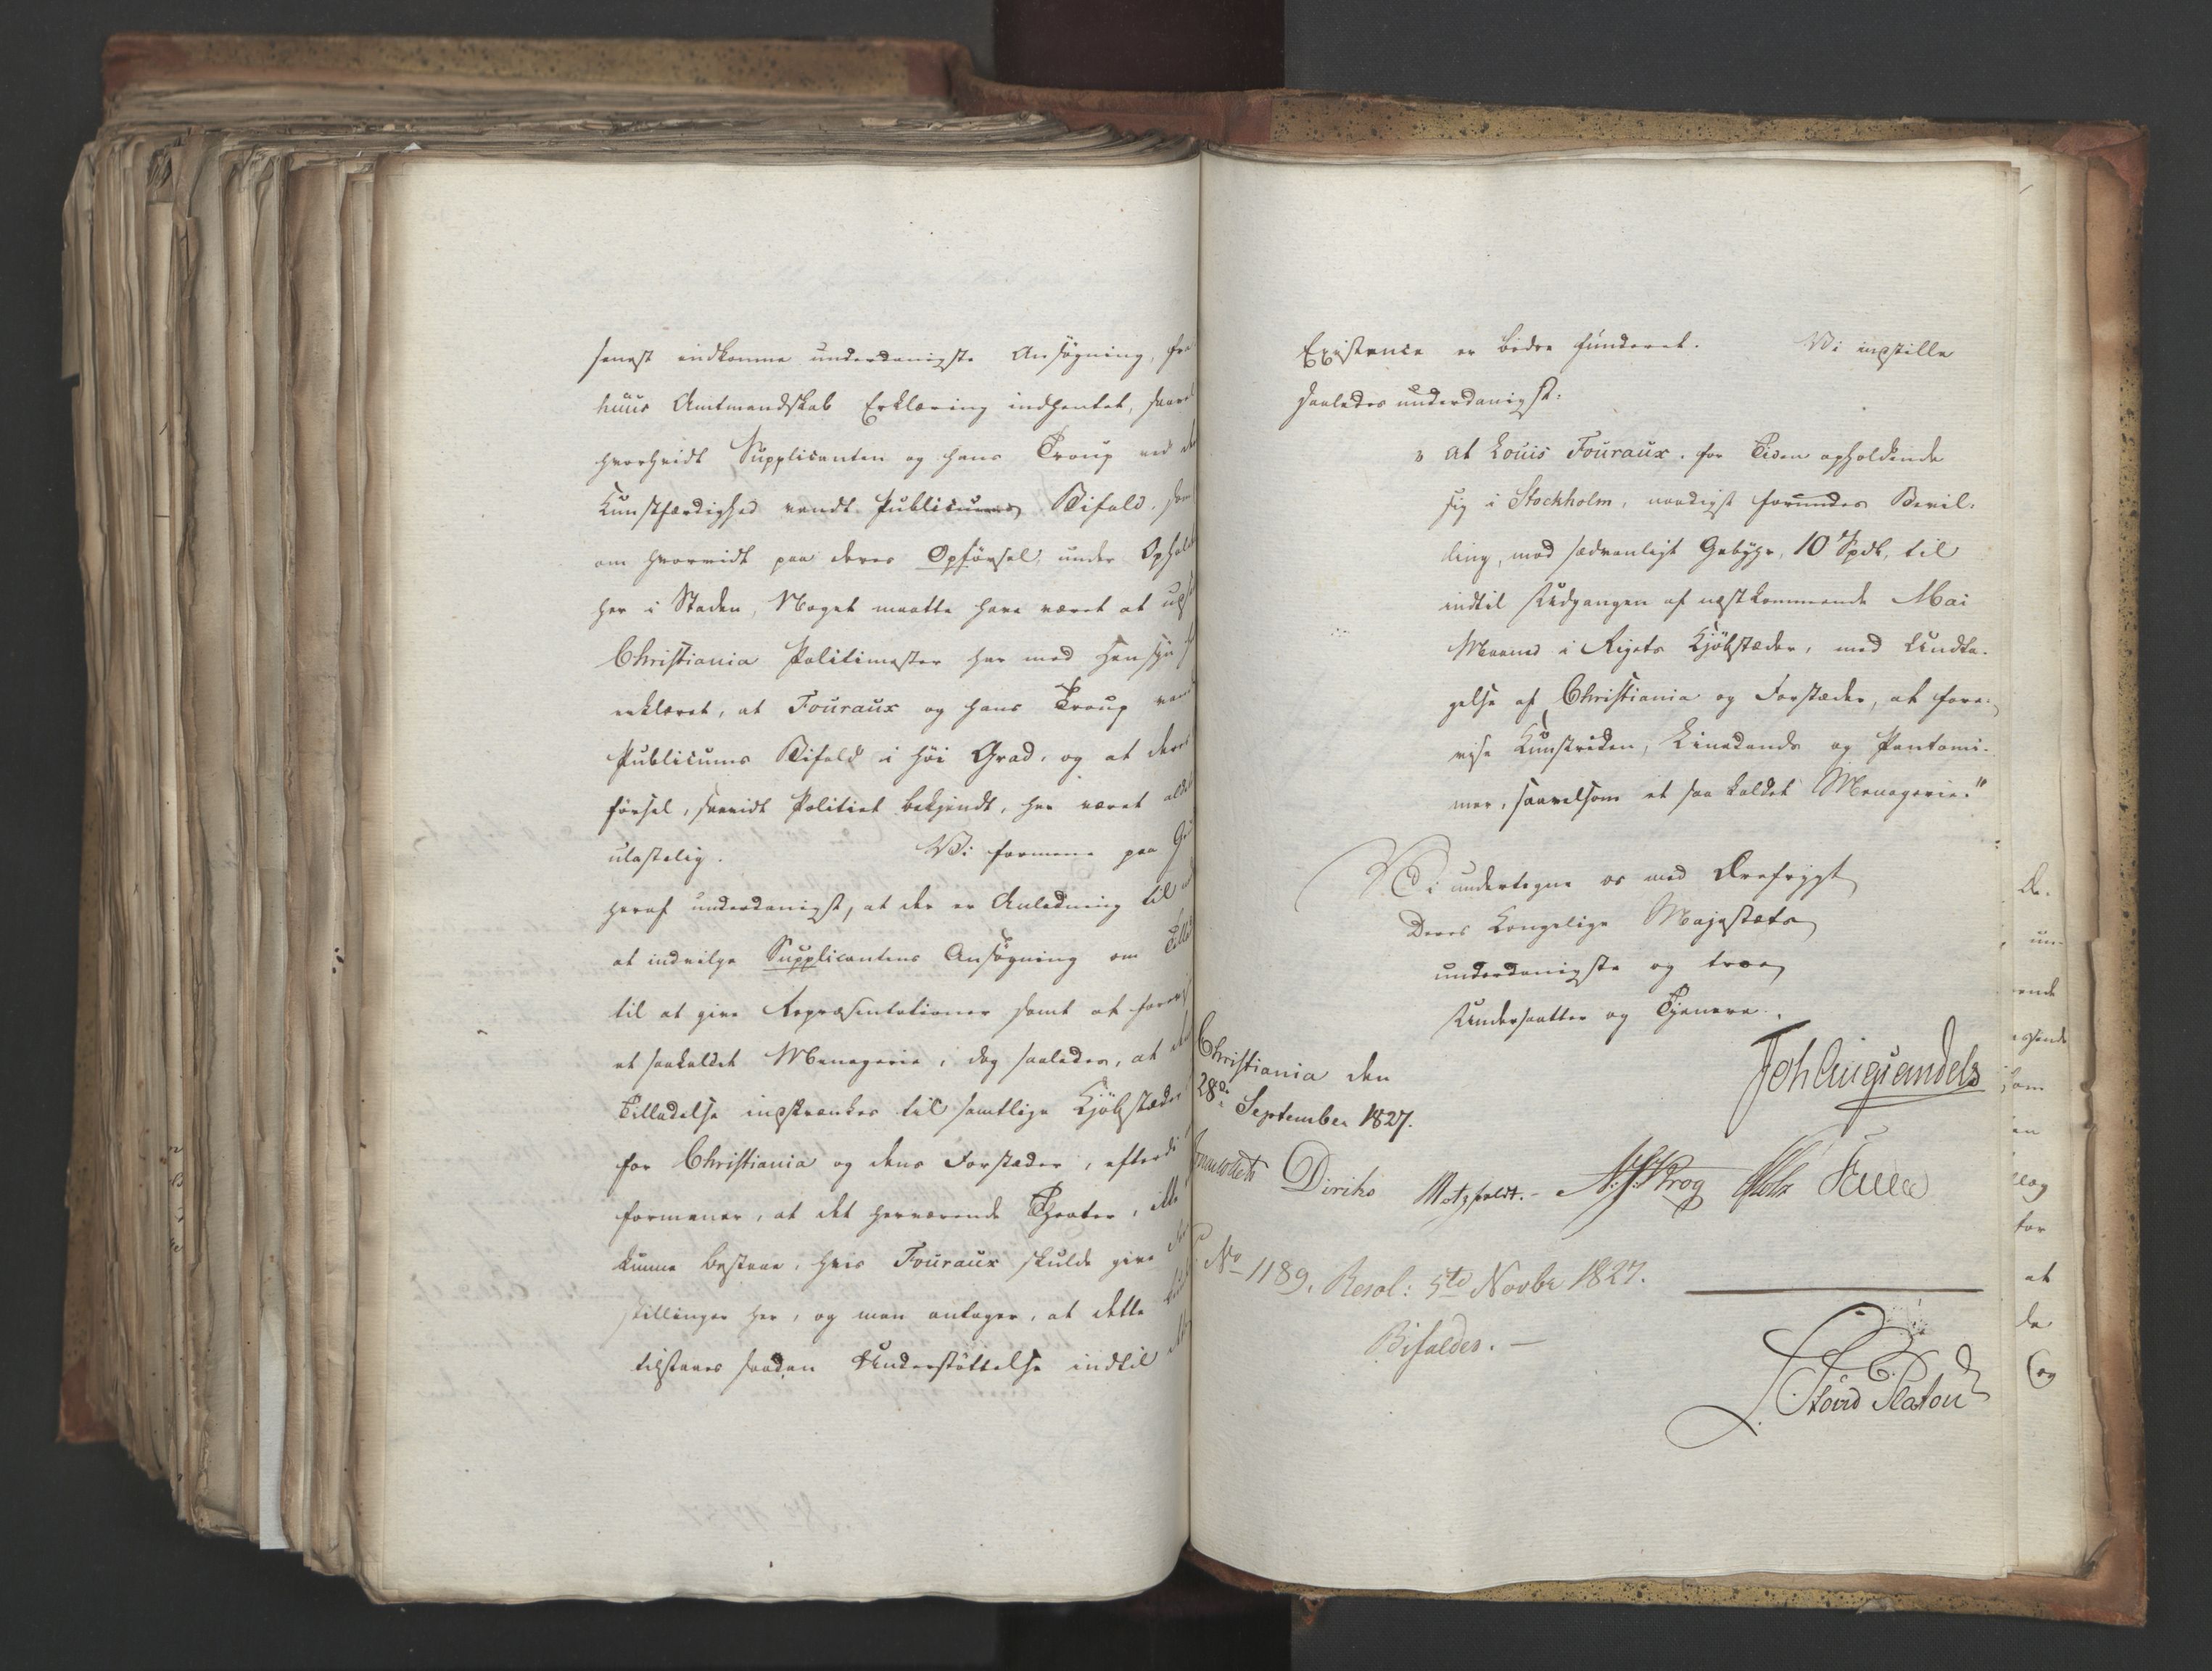 senest indkomne underdanigste Ansøgning, fra
huus Amtmandskab Erklæring indhentet, saavel
hvorvidt Supplicanten og hans Troup ved
Kunstfærdighed vandt Publicums Bifald, som
om hvorvidt paa deres Opførsel, under Ophold
her i Staden, Noget maatte have været at
Christiania Politimester har med Hensyn
erklæret, at Fouraux og hans Troup vandt
Publicums Bifald i høi Grad, og at deres
førsel, saavidt Politiet bekjendt, har været
ulastelig. Vi formene paa
heraf underdanigst, at der er Anledning til
at indvilge Supplicantens Ansøgning om
til at give Repræsentationer samt at forevise
et saakaldet Menagerie, dog saaledes, at
Tilladelse indskrænkes til samtlige Kjøbstæder
for Christiania og dens Forstæder, efterdi
formener, at det herværende Theater, ikke
kunne bestaae, hvis Fouraux skulde give
stillinger her, og man antager, at dette
tilstaaes saadan Understøttelse indtil
Existence er bedre funderet. Vi indstille
saaledes underdanigst:
" at Louis Fouraux, for Tiden opholdende
sig i Stockholm, naadigst forundes Bevil-
ling, mod sædvanligt Gebyhr, 10 Spdlr, til
indtil Udgangen af næstkommende Mai
Maaned i Rigets Kjøbstæder, med Undta-
gelse af Christiania og Forstæder, at fore-
vise Kunstriden, Linedands og Pantomi-
mer, saavelsom et saa kaldet Menagerie."
Vi undertegne os med Ærefrygt
Deres Kongelige Majestæts
underdanigste og troe
Undersaatter og Tjenere.
Joh Aug Sandels
Christiania den
28de September 1827.
Diriks Motzfeldt. N. J. Krog Holst Fasting
No 1189. Resol: 5te Novbr 1827.
Bifaldes. —
L. Stoud Platou